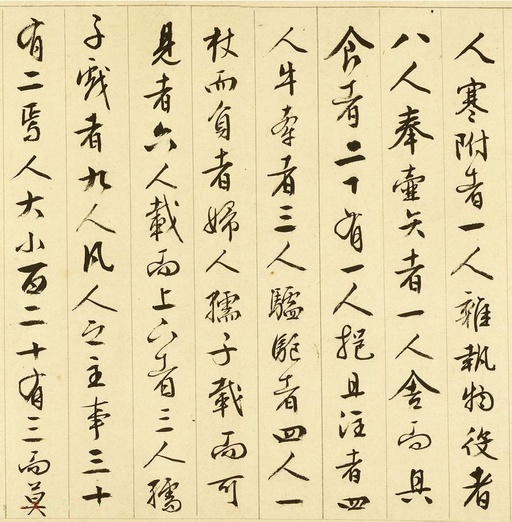 人寒附者一人雜執物役者
八人奉壺矢者一人舍而具
食者二十有一人挹且注者四
人牛牽者三人驢驅者四人一
杖而負者婦人孺子載而可
見者六人載而上下者三人孺
子戲者九人凡人之主事三十
有二焉人大小百二十有三而莫